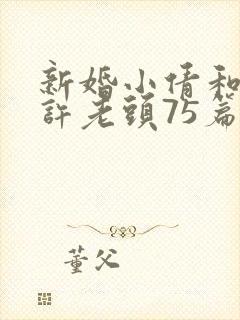 新婚小倩和
許老頭75篇
董父